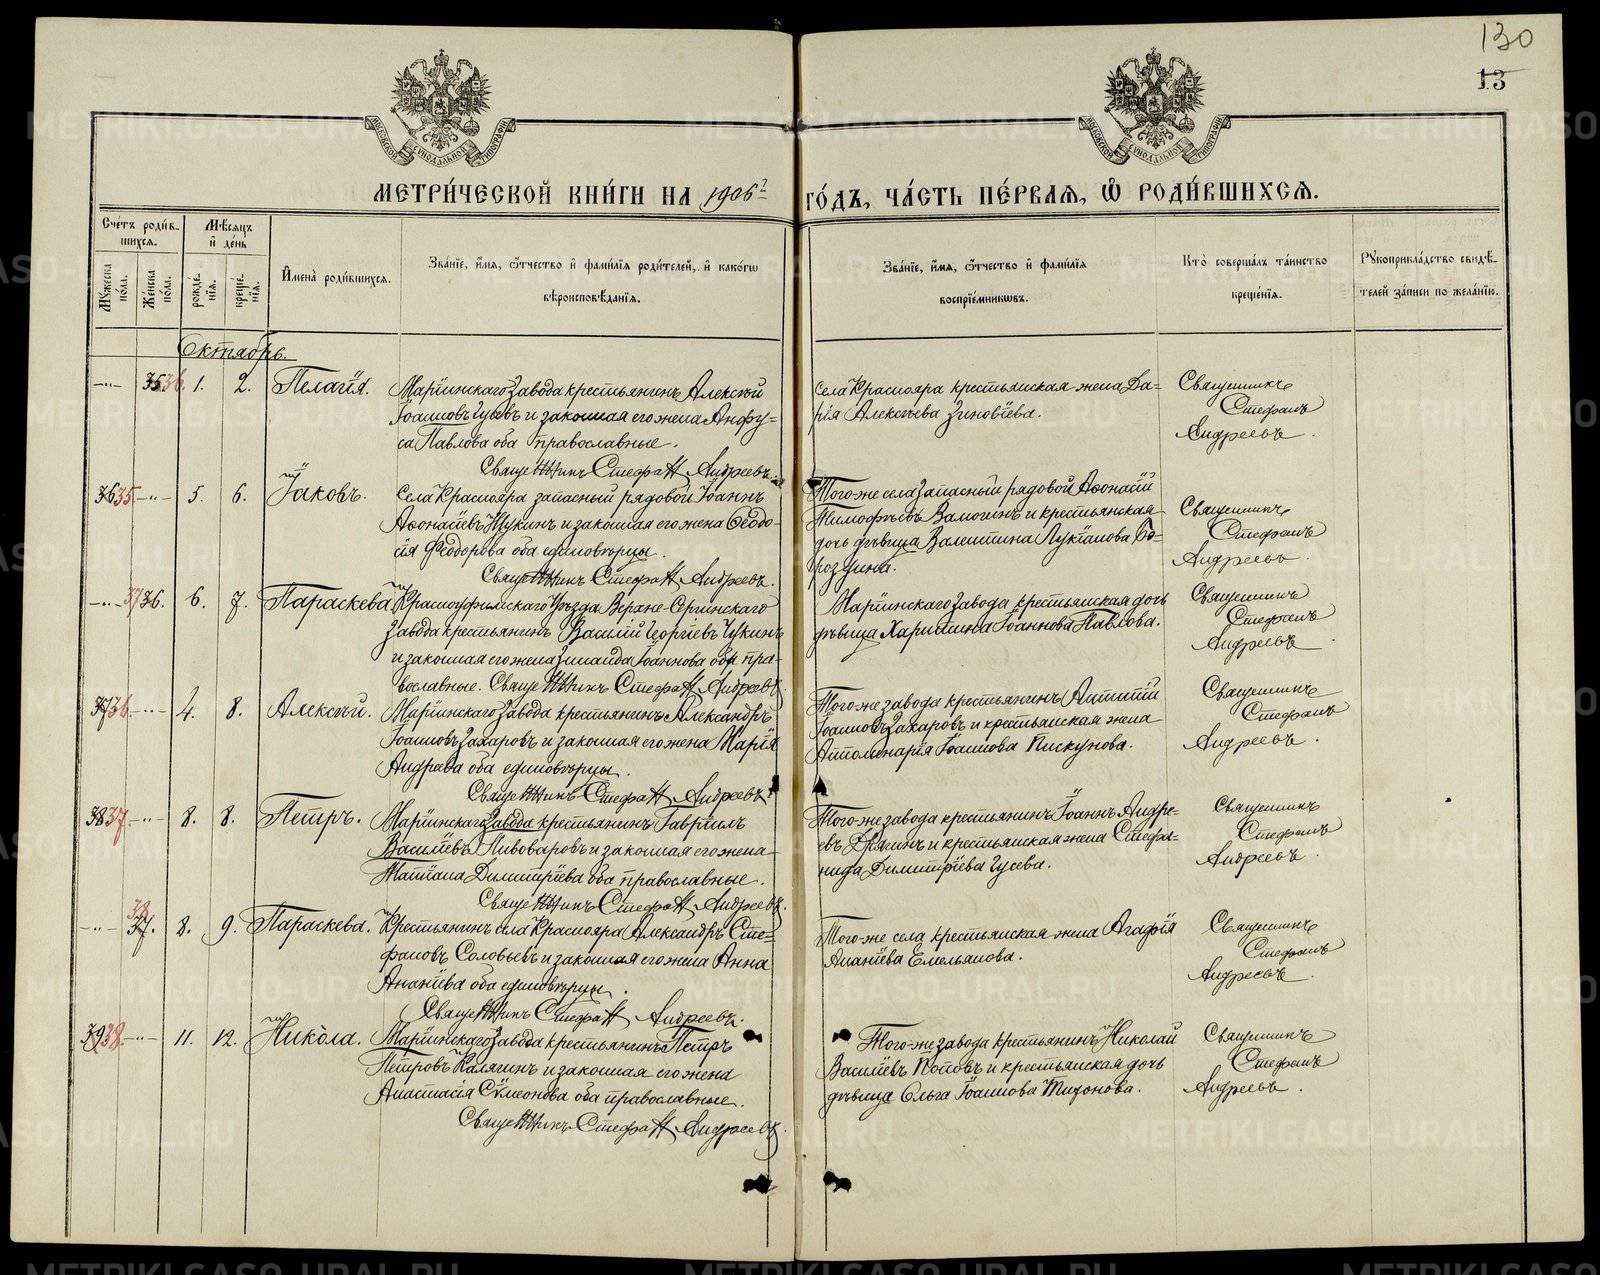 130
13
МОСКОВСКОЙ СѴНОДАЛЬНОЙ ТИПОГРАФІИ
МОСКОВСКОЙ СѴНОДАЛЬНОЙ ТИПОГРАФІИ
МЕТРИ́ЧЕСКОЙ КНИ́ГИ НА 1906 г. ГО́ДЪ, ЧА́СТЬ ПЕ́РВАѦ, Ѡ РОДИ́ВШИХСѦ.
Сче́тъ роди́в-
шихся.
Мѣ́сяцъ
и де́нь
Му́жеска по́ла.
Же́нска по́ла.
рожде́нїя.
креще́нїя.
И҆мена̀ роди́вшихся.
Зва́нїе, и҆́мя, ѻ҆́тчество и҆ фами́лїѧ роди́телей, и҆ како́гѡ
вѣроисповѣ́данїѧ.
Зва́нїе, и҆́мя, ѻ҆́тчество и҆ фами́лїѧ
воспрїе́мникѡвъ.
Кто̀ соверша́лъ та́инство
креще́нїѧ.
Рꙋкоприкла́дство свидѣ́-
телей за́писи по жела́нїю.
Октябрь.
-"- 35 36. 1. 2. Пелагія.
Маріинскаго завода крестьянинъ Алексѣй
Іоанновъ Гусевъ и законная его жена Анфу-
са Павлова оба православные.
Священникъ Стефанъ Андреевъ.
Села Краснояра крестьянская жена Да-
рія Алексѣева Зиновіева.
Священникъ
Стефанъ
Андреевъ.
36 35 -"- 5. 6. Іаковъ.
Села Краснояра запасный рядовой Іоаннъ
Аѳонасіевъ Щукинъ и законная его жена Ѳеодо-
сія Ѳеодорова оба единовѣрцы.
Священникъ Стефанъ Андреевъ.
Того-же села запасный рядовой Аѳонасій
Тимофѣевъ Вамогинъ и крестьянская
дочь дѣвица Валентина Лукіанова Бо-
роздина.
Священникъ
Стефанъ
Андреевъ.
-"- 37 36. 6. 7. Параскева
Красноуфимскаго Уѣзда Верхне-Сергинскаго
завода крестьянинъ Василій Георгіевъ Чукинъ
и законная его жена Зинаида Іоаннова оба пра-
вославные. Священникъ Стефанъ Андреевъ.
Маріинскаго завода крестьянская дочь
дѣвица Харитина Іоаннова Павлова.
Священникъ
Стефанъ
Андреевъ.
37 36. -"- 4. 8. Алексѣй.
Маріинскаго завода крестьянинъ Александръ
Іоанновъ Захаровъ и законная его жена Марія
Андреева оба единовѣрцы.
Священникъ Стефанъ Андреевъ.
Того-же завода крестьянинъ
Іоанновъ Захаровъ и крестьянская жена
Апполинарія Іоаннова Пискунова.
Священникъ
Стефанъ
Андреевъ.
38 37 -"- 8. 8. Петръ.
Маріинскаго завода крестьянинъ Гавріилъ
Василіевъ Пивоваровъ и законная его жена
Татіана Димитріева оба православные.
Священникъ Стефанъ Андреевъ.
Того-же завода крестьянинъ Іоаннъ Андре-
евъ и крестьянская жена Стефа-
нида Димитріева Гусева.
Священникъ
Стефанъ
Андреевъ.
-"- 38 37. 8. 9. Параскева.
Крестьянинъ села Краснояра Александръ Сте-
фановъ Соловьевъ и законная его жена Анна
Ананіева оба единовѣрцы.
Священникъ Стефанъ Андреевъ.
Того-же села крестьянская жена Агафія
Ананіева Емельянова.
Священникъ
Стефанъ
Андреевъ.
39 38. -"- 11. 12. Никола.
Маріинскаго завода крестьянинъ Петръ
Петровъ Калягинъ и законная его жена
Анастасія Сѵмеонова оба православные.
Священникъ Стефанъ Андреевъ.
Того-же завода крестьянинъ Николай
Василіевъ Поповъ и крестьянская дочь
дѣвица Ольга Іоаннова Тихонова.
Священникъ
Стефанъ
Андреевъ.
METRIKI.GASO-URAL.RU